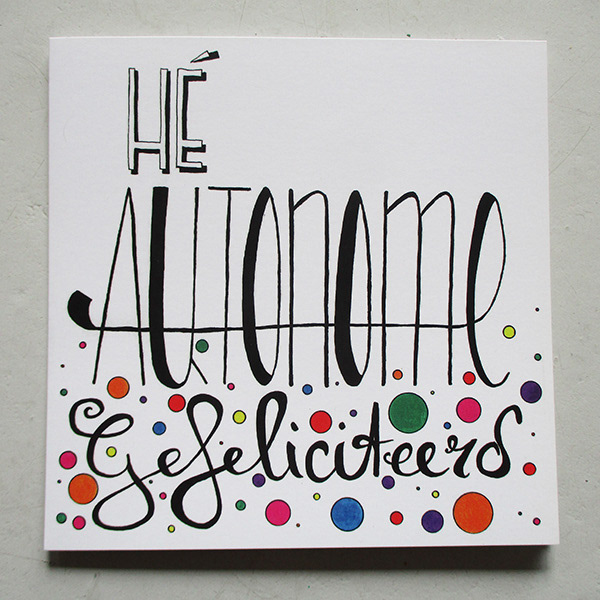 HÉ
AUTONOME
Gefeliciteerd